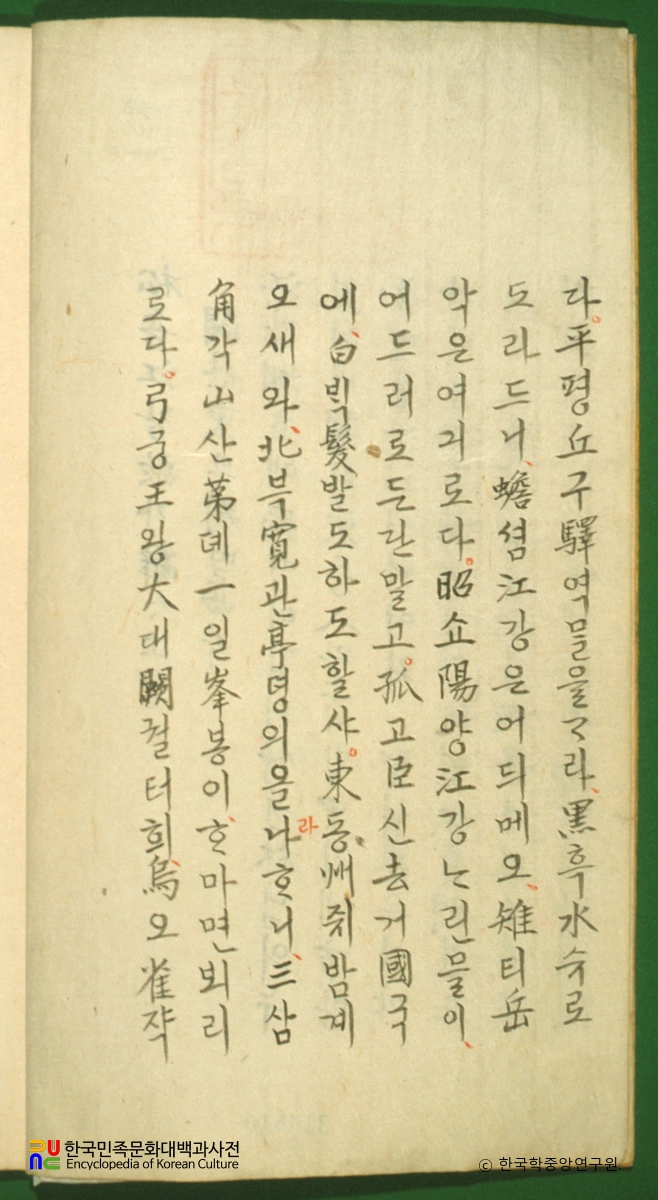 다。平평丘구驛역믈을ᄀᆞ라、黑흑水슈로
도라드니、蟾셤江강은어듸메오、雉티岳
악은여긔로다。昭쇼陽양江강ᄂᆞ린믈이、
어드러로든단말고。孤고臣신去거國국
에、白ᄇᆡᆨ髮발도하도할샤。東동州쥐밤계
오새와、北븍寬관亭뎡의올나라ᄒᆞ니、三삼
角각山산第뎨一일峯봉이、ᄒᆞ마면뵈리
로다。弓궁王왕大대闕궐터희、烏오雀쟉
한국민족문화대백과사전
Encyclopedia of Korean Culture
ⓒ 한국학중앙연구원